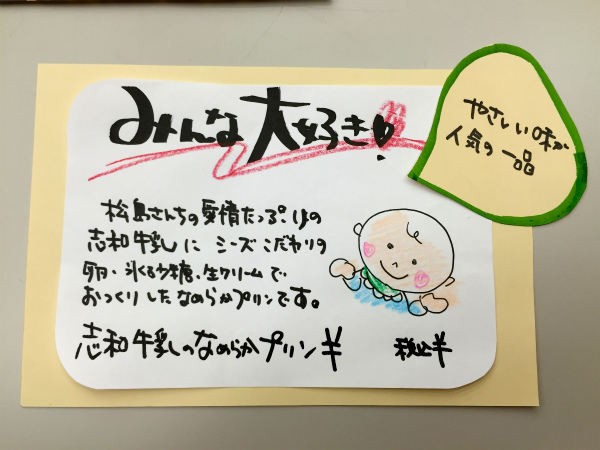 みんな大好き!
やさしい味が
人気の一品
松島さんちの愛情たっぷりの
志和牛乳に シーズこだわりの
卵・氷くるり糖・生クリームで
おつくりしたなめらかプリンです。
志和牛乳のなめらかプリン¥
税込¥